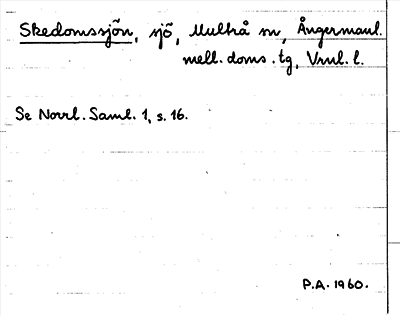 Skedomssjön, sjö, Multrå sn, Ångermanl.
mell. doms. tg, Vnl. l.
Se Norrl. Saml. 1, s. 16.
P.A. 1960.